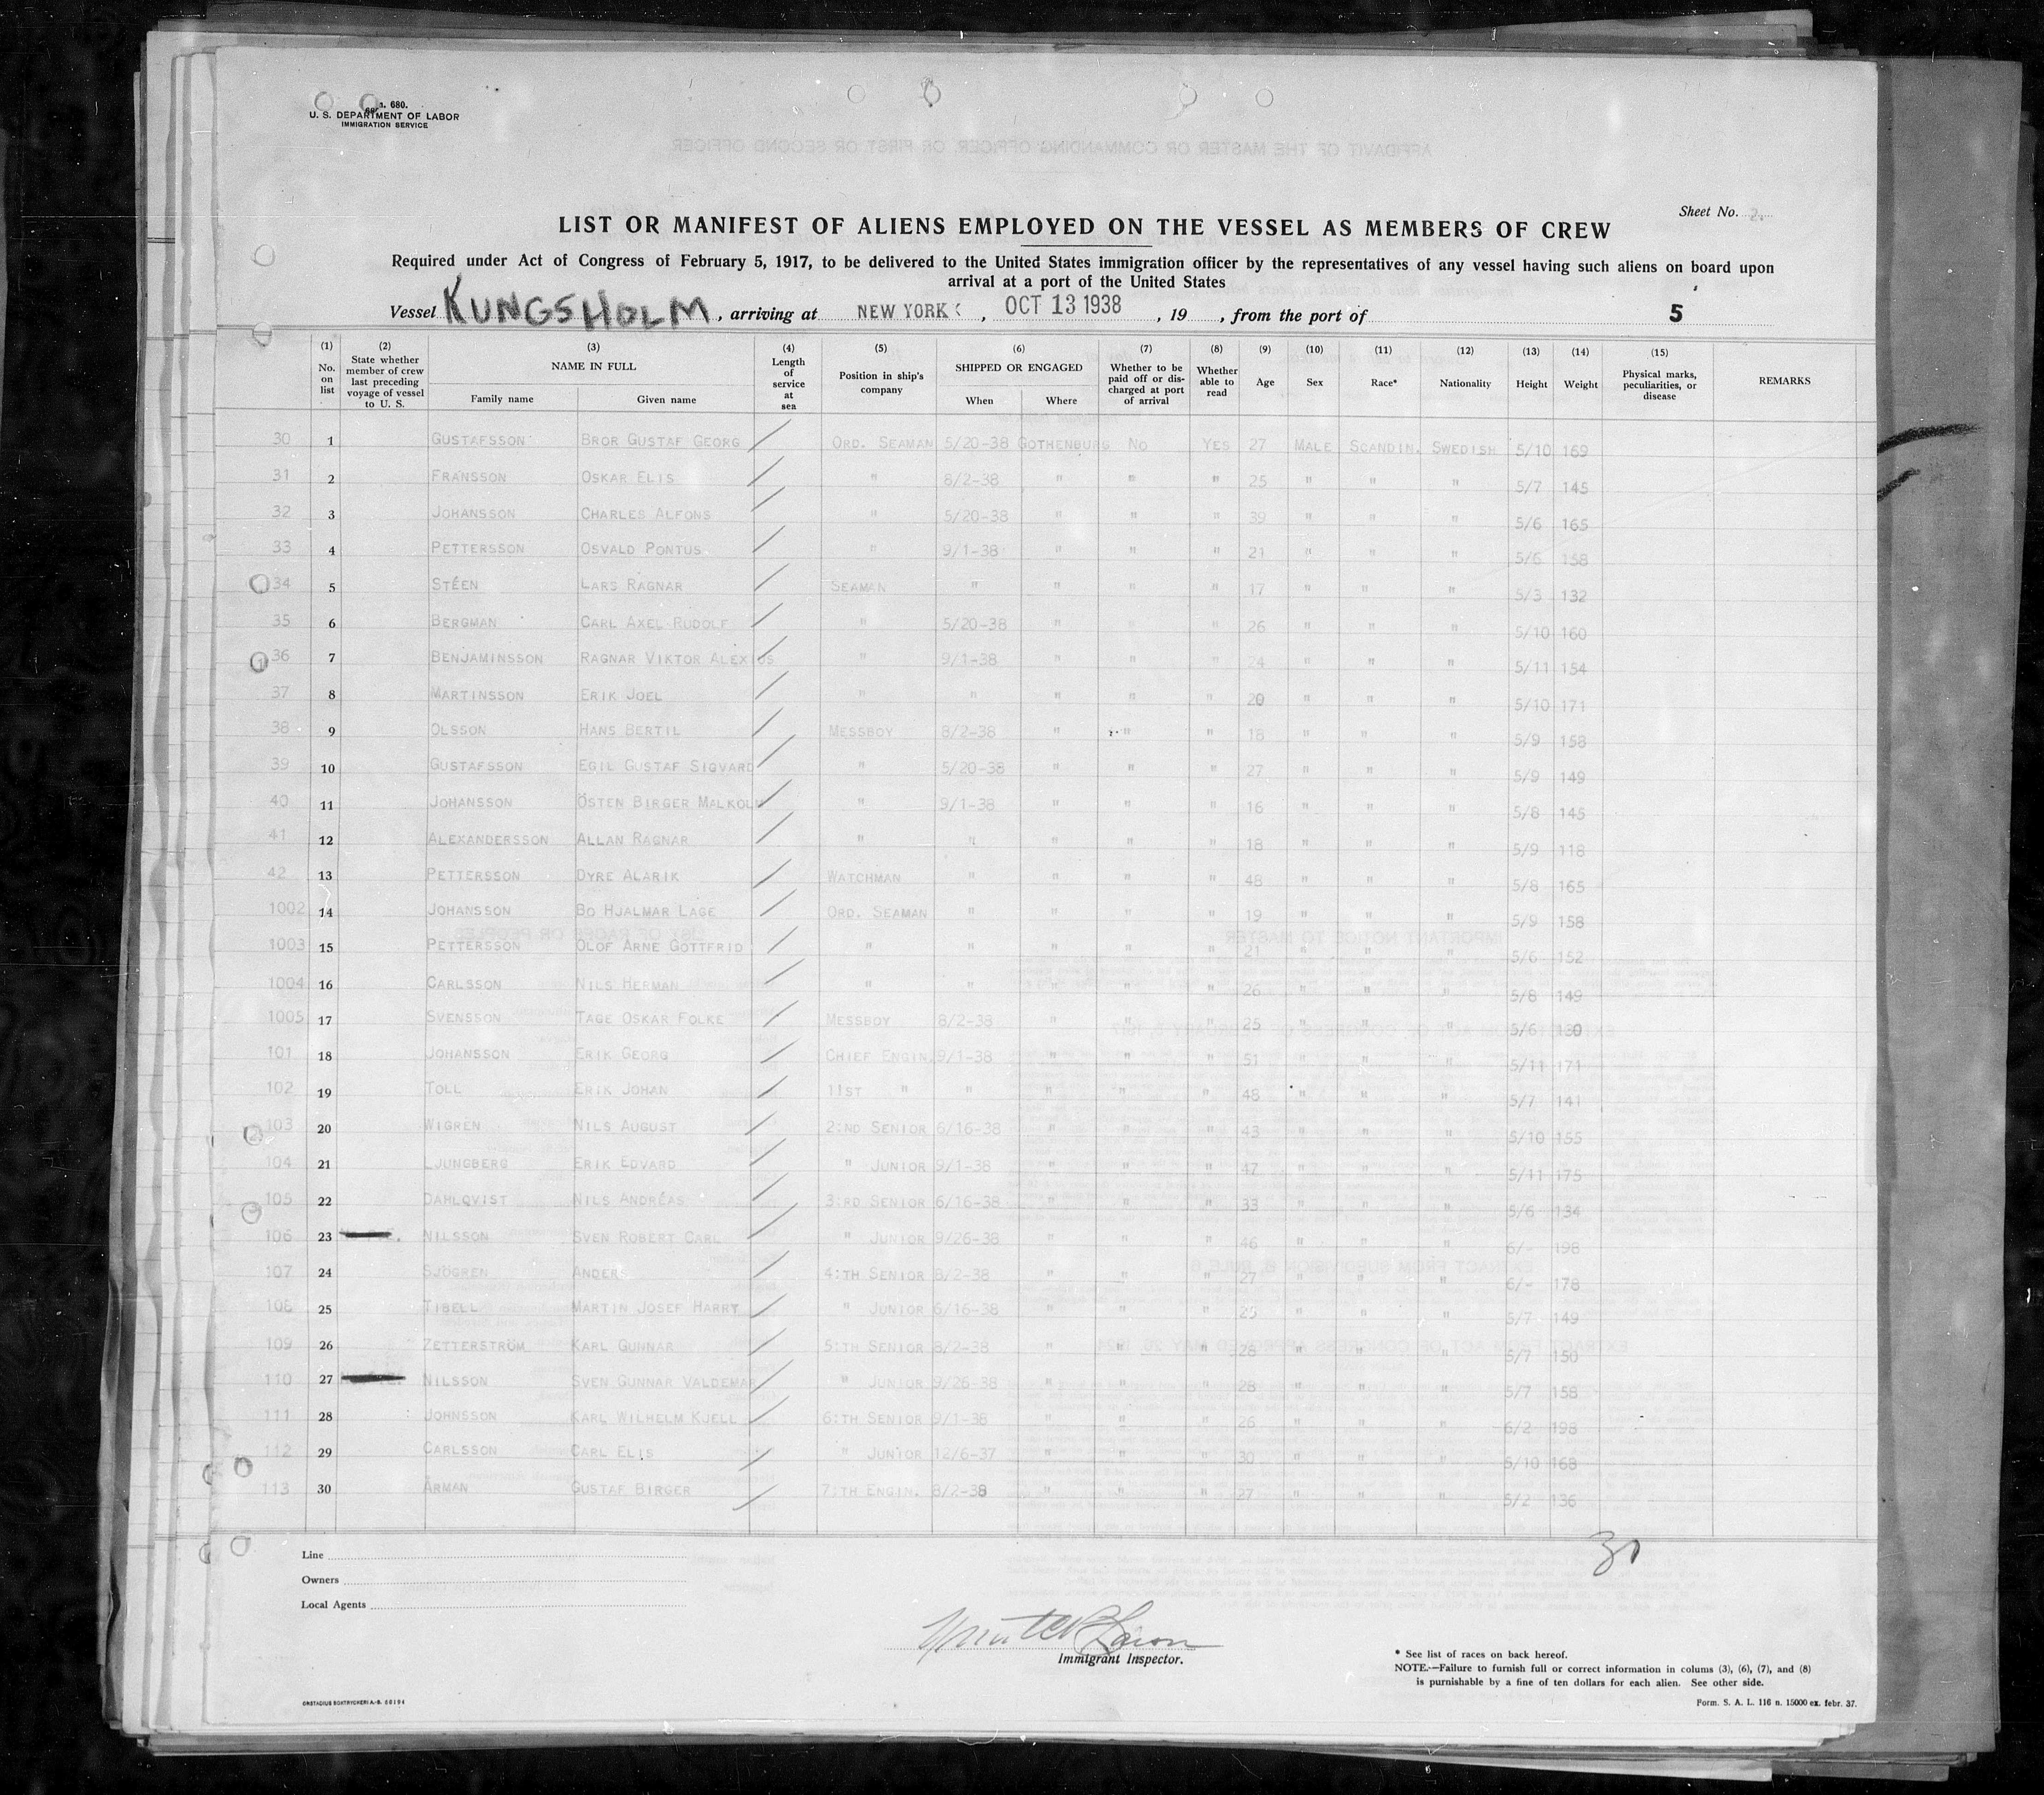 n. 680.
U. S. DEPARTMENT OF LABOR
IMMIGRATION SERVICE
Sheet No. 2.
LIST OR MANIFEST OF ALIENS EMPLOYED ON THE VESSEL AS MEMBERS OF CREW
Required under Act of Congress of February 5, 1917, to be delivered to the United States immigration officer by the representatives of any vessel having such aliens on board upon
arrival at a port of the United States
Vessel KUNGSHOLM, arriving at NEW YORK, OCT 13 1938, 19 , from the port of 5
(1) No. on list (2) State whether member of crew last preceding voyage of vessel to U. S. (3) NAME IN FULL Family name Given name (4) Length of service at sea (5) Position in ship's company (6) SHIPPED OR ENGAGED When Where (7) Whether to be paid off or discharged at port of arrival (8) Whether able to read (9) Age (10) Sex (11) Race* (12) Nationality (13) Height (14) Weight (15) Physical marks, peculiarities, or disease REMARKS
30 1 GUSTAFSSON BROR GUSTAF GEORG ORD. SEAMAN 5/20-38 GOTHENBURG NO YES 27 MALE SCANDIN. SWEDISH 5/10 169
31 2 FRANSSON OSKAR ELIS " 8/2-38 " " " 25 " " " 5/7 145
32 3 JOHANSSON CHARLES ALFONS " 5/20-38 " " " 39 " " " 5/6 165
33 4 PETTERSSON OSVALD PONTUS " 9/1-38 " " " 21 " " " 5/6 158
34 5 STÉEN LARS RAGNAR SEAMAN " " " " 17 " " " 5/3 132
35 6 BERGMAN CARL AXEL RUDOLF " 5/20-38 " " " 26 " " " 5/10 160
36 7 BENJAMINSSON RAGNAR VIKTOR ALEXIUS " 9/1-38 " " " 24 " " " 5/11 154
37 8 MARTINSSON ERIK JOEL " " " " " 20 " " " 5/10 171
38 9 OLSSON HANS BERTIL MESSBOY 8/2-38 " " " 18 " " " 5/9 158
39 10 GUSTAFSSON EGIL GUSTAF SIGVARD " 5/20-38 " " " 27 " " " 5/9 149
40 11 JOHANSSON ÖSTEN BIRGER MALKOLM " 9/1-38 " " " 16 " " " 5/8 145
41 12 ALEXANDERSSON ALLAN RAGNAR " " " " " 18 " " " 5/9 118
42 13 PETTERSSON DYRE ALARIK WATCHMAN " " " " 48 " " " 5/8 165
1002 14 JOHANSSON BO HJALMAR LAGE ORD. SEAMAN " " " " 19 " " " 5/9 158
1003 15 PETTERSSON OLOF ARNE GOTTFRID " " " " " 21 " " " 5/6 152
1004 16 CARLSSON NILS HERMAN " " " " " 26 " " " 5/8 149
1005 17 SVENSSON TAGE OSKAR FOLKE MESSBOY 8/2-38 " " " 25 " " " 5/6 130
101 18 JOHANSSON ERIK GEORG CHIEF ENGIN. 9/1-38 " " " 51 " " " 5/11 171
102 19 TOLL ERIK JOHAN 11ST " " " " " 48 " " " 5/7 141
103 20 WIGREN NILS AUGUST 2:ND SENIOR 6/16-38 " " " 43 " " " 5/10 155
104 21 LJUNGBERG ERIK EDVARD " JUNIOR 9/1-38 " " " 47 " " " 5/11 175
105 22 DAHLQVIST NILS ANDRÉAS 3:RD SENIOR 6/16-38 " " " 33 " " " 5/6 134
106 23 NILSSON SVEN ROBERT CARL " JUNIOR 9/26-38 " " " 46 " " " 6/- 198
107 24 SJÖGREN ANDERS 4:TH SENIOR 8/2-38 " " " 27 " " " 6/- 178
108 25 TIBELL MARTIN JOSEF HARRY " JUNIOR 6/16-38 " " " 25 " " " 5/7 149
109 26 ZETTERSTRÖM KARL GUNNAR 5:TH SENIOR 8/2-38 " " " 28 " " " 5/7 150
110 27 NILSSON SVEN GUNNAR VALDEMAR " JUNIOR 9/26-38 " " " 28 " " " 5/7 158
111 28 JOHNSSON KARL WILHELM KJELL 6:TH SENIOR 9/1-38 " " " 26 " " " 6/2 198
112 29 CARLSSON CARL ELIS " JUNIOR 12/6-37 " " " 30 " " " 5/10 168
113 30 ÅRMAN GUSTAF BIRGER 7:TH ENGIN. 8/2-38 " " " 27 " " " 5/2 136
30
Line
Owners
Local Agents
Immigrant Inspector.
* See list of races on back hereof.
NOTE.—Failure to furnish full or correct information in colums (3), (6), (7), and (8)
is purnishable by a fine of ten dollars for each alien. See other side.
ORSTADIUS BOKTRYCKERI A.-B. 66194
Form. S. A. L. 116 n. 15000 ex. febr. 37.